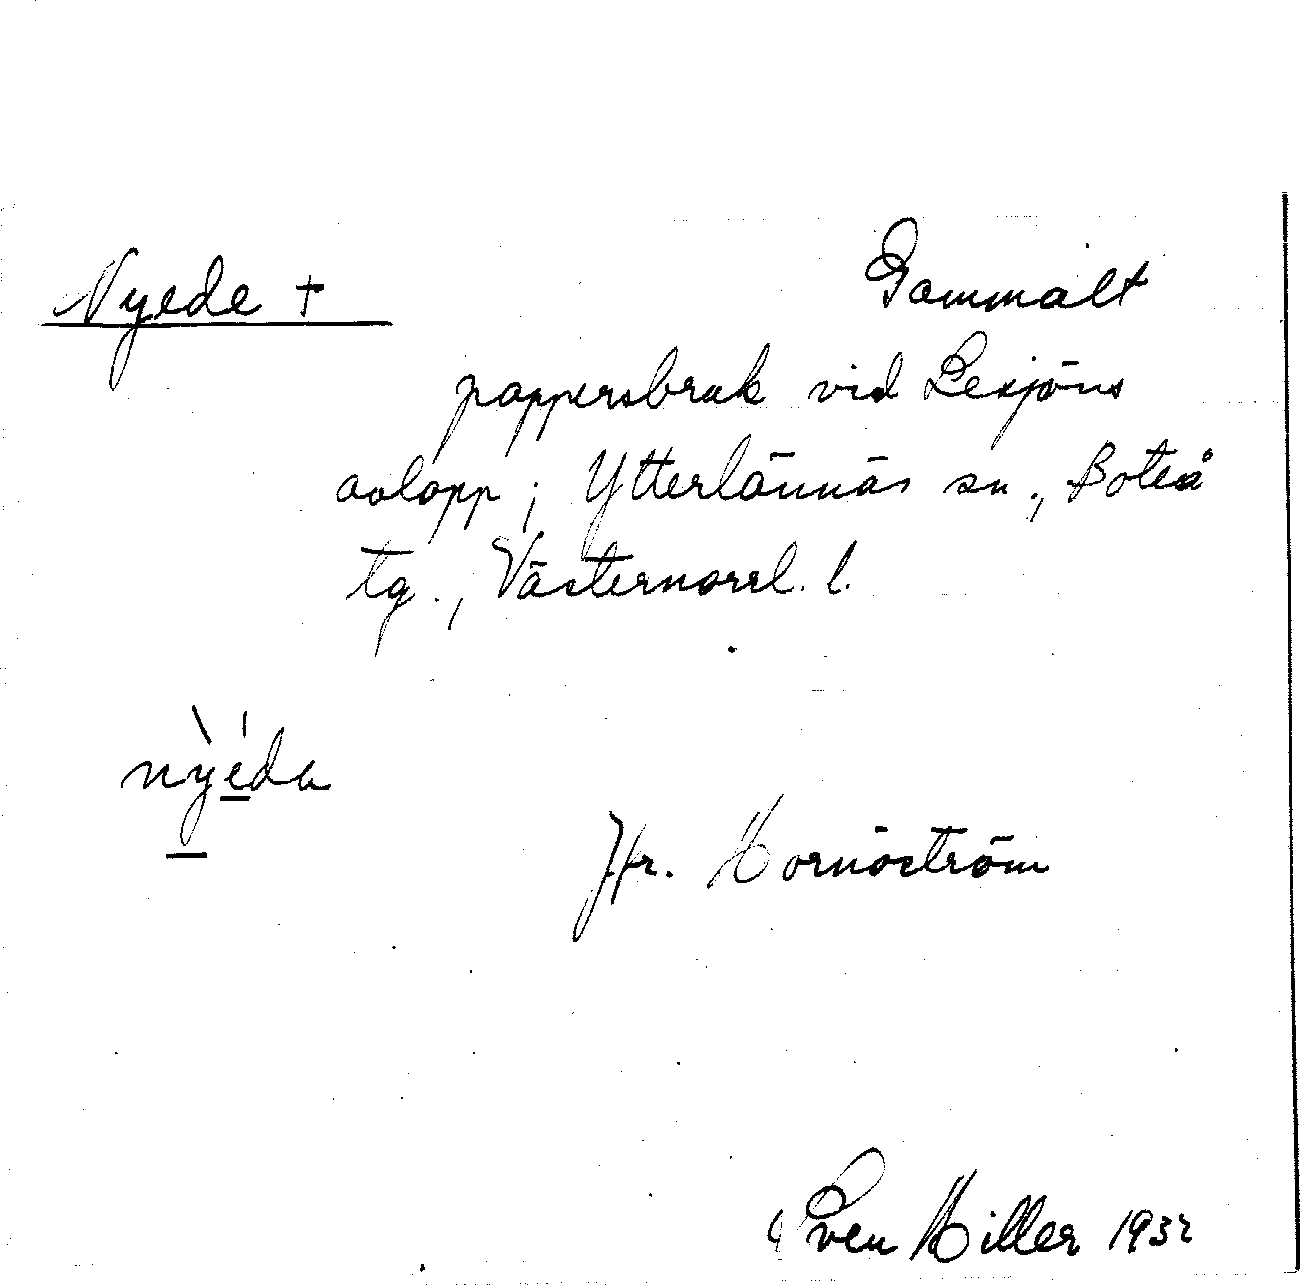 Nyede + Gammalt
pappersbruk vid Lesjöns
avlopp; Ytterlännäs sn., Boteå
tg., Västernorrl. l.
nỳéda
Jfr. Hornöström
Sven Hiller 1932